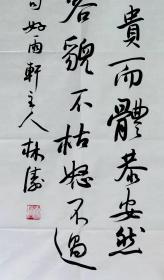 貴而體恭安然
容貌不枯怒不過
好雨軒主人林濤